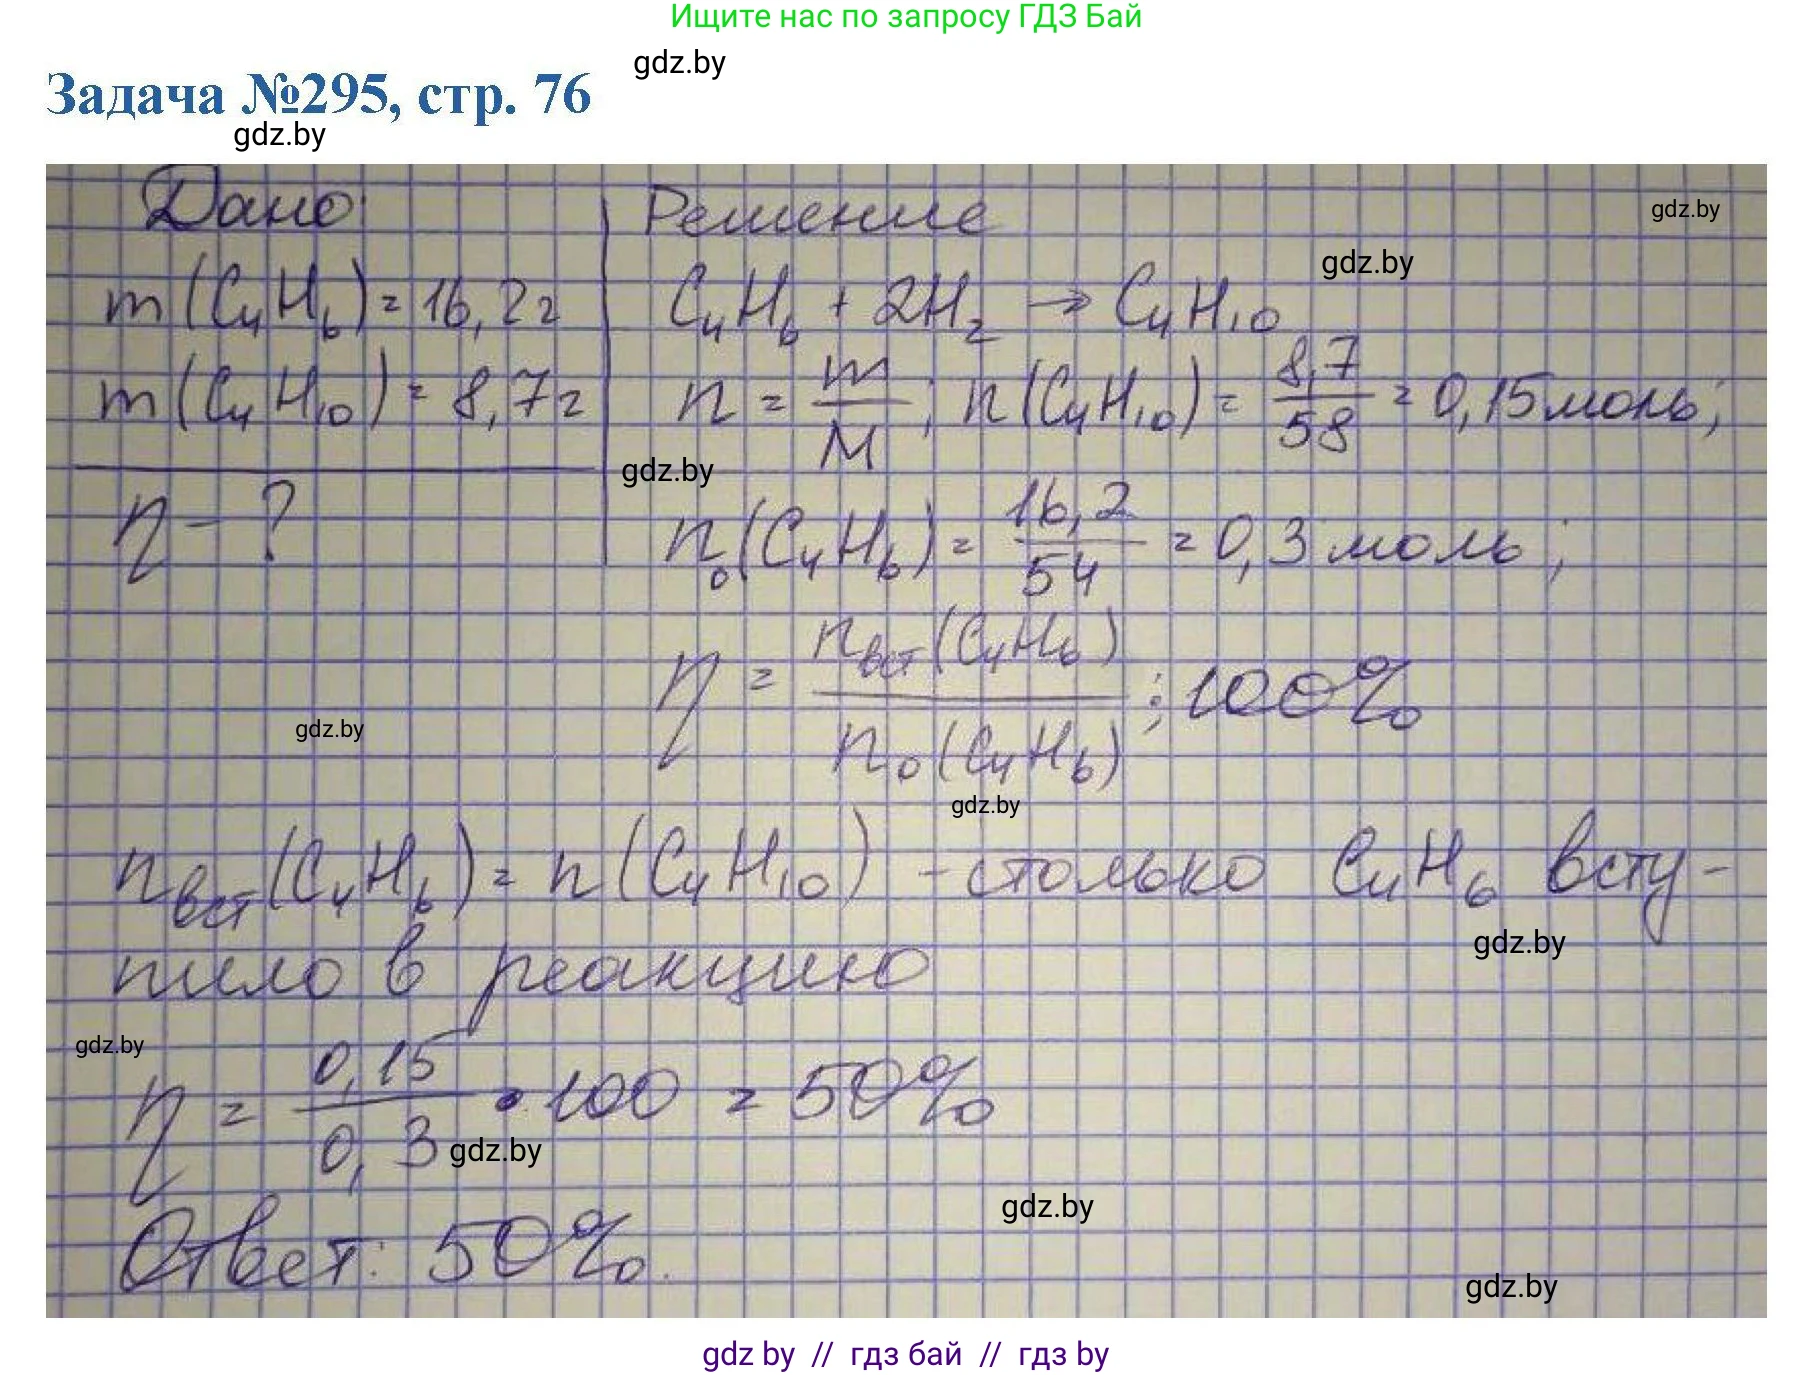 Ищите нас по запросу ГДЗ Бай
gdz.by
Задача №295, стр. 76
gdz.by
Дано:
m(C₄H₆) = 16,2г
m(C₄H₁₀) = 8,7г
η - ?
Решение
gdz.by
gdz.by
C₄H₆ + 2H₂ → C₄H₁₀
n = m/M ; n(C₄H₁₀) = 8,7/58 = 0,15моль;
gdz.by
n₀(C₄H₆) = 16,2/54 = 0,3моль;
η = nвст(C₄H₆)/n₀(C₄H₆) ; 100%
gdz.by
gdz.by
nвст(C₄H₆) = n(C₄H₁₀) - столько C₄H₆ всту-
gdz.by
пило в реакцию
gdz.by
η = 0,15/0,3 · 100 = 50%
gdz.by
gdz.by
Ответ: 50%.
gdz.by
gdz by // гдз бай // гдз by